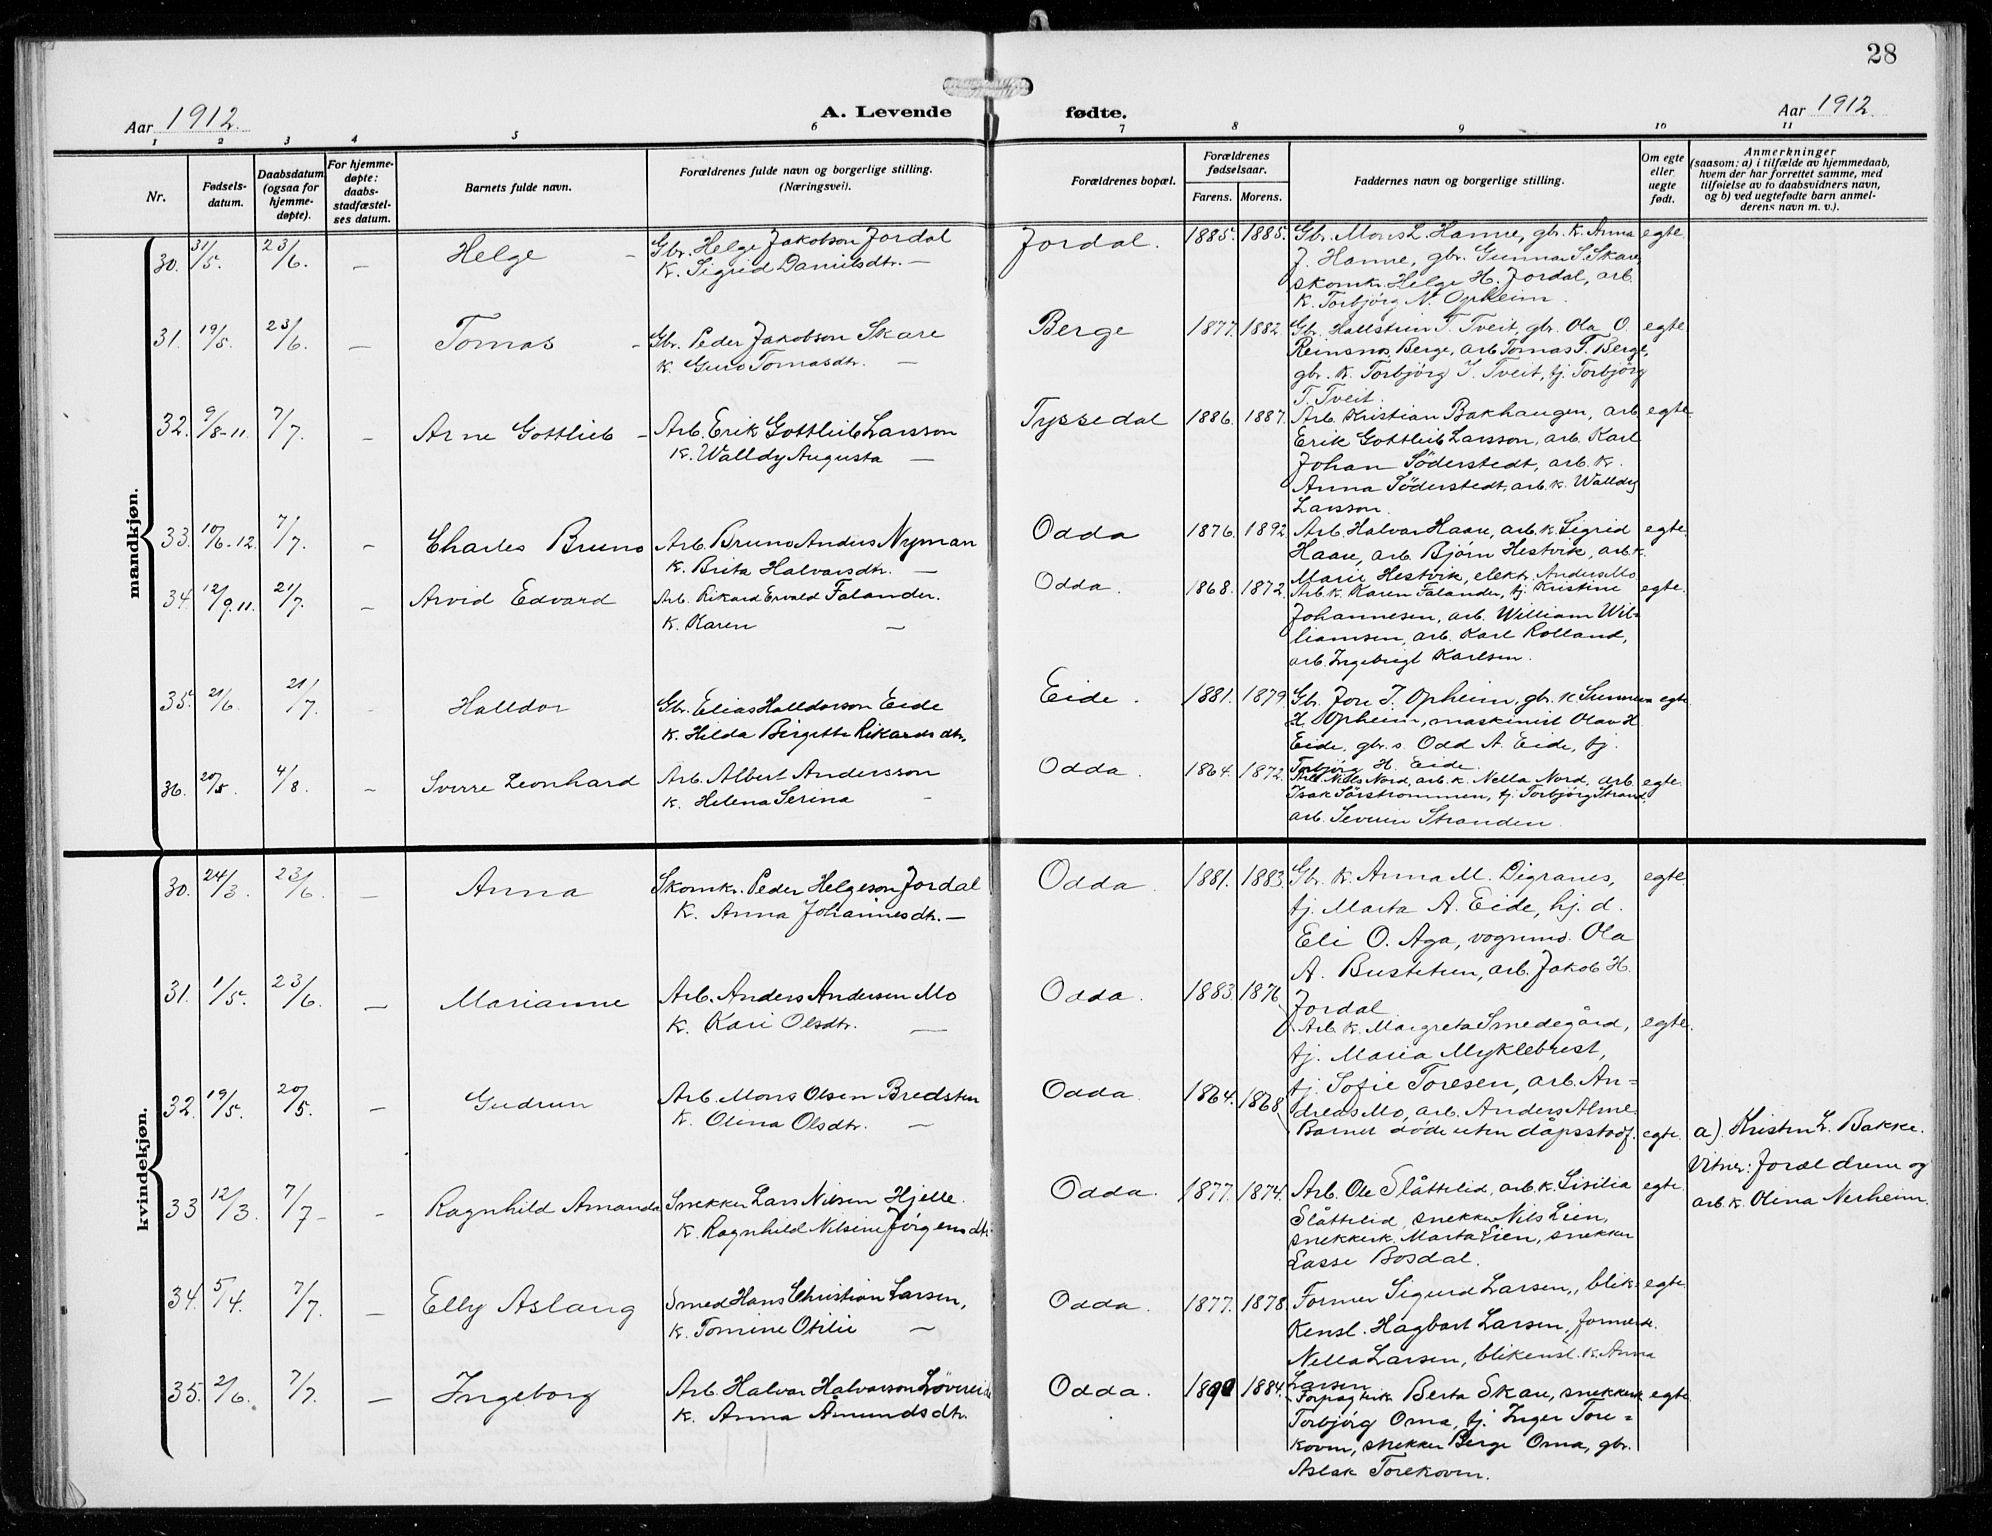 28
Aar 1912.
A. Levende fødte.
Aar 1912.
1 2 3 4 5 6 7 8 9 10 11
Nr.
Fødsels-
datum.
Daabsdatum
(ogsaa for
hjemme-
døpte).
For hjemme-
døpte:
daabs-
stadfæstel-
ses datum.
Barnets fulde navn.
Forældrenes fulde navn og borgerlige stilling.
(Næringsvei).
Forældrenes bopæl.
Forældrenes
fødselsaar.
Farens. Morens.
Faddernes navn og borgerlige stilling.
Om egte
eller
uegte
født.
Anmerkninger
(saasom: a) i tilfælde av hjemmedaab,
hvem der har forrettet samme, med
tilføielse av to daabsvidners navn,
og b) ved uegtefødte barn anmel-
derens navn m. v.).
mandkjøn.
30. 31/5. 23/6. — Helge –
Gbr. Helge Jakobson Jordal
K. Sigrid Danielsdtr. —
Jordal. 1885. 1885.
Gbr. Mons L. Hamre, gbr. k. Anna
J. Hamre, gbr. Gunnar S. Skare,
skomkr. Helge H. Jordal, arb.
k. Torbjørg N. Opheim.
egte.
31. 19/5. 23/6. — Tomas –
Gbr. Peder Jakobson Skare
K. Guro Tomasdtr. —
Berge 1877. 1882.
Gbr. Hallstein T. Tveit, gbr. Ola O.
Reinsnos, Berge, arb Tomas T. Berge,
gbr. k. Torbjörg I. Tveit, tj. Torbjörg
T. Tveit.
egte.
32. 9/8-11. 7/7. – Arne Gottlieb –
Arb. Erik Gottlieb Larsson
K. Walldy Augusta —
Tyssedal 1886. 1887.
Arb. Kristian Bakhaugen, arb
Erik Gottlieb Larsson, arb. Karl
Johan Söderstedt, arb. k.
Anna Söderstedt, arb. k. Walldy
Larsson.
egte
33. 10/6-12. 7/7. – Charles Bruno
Arb. Bruno Anders Nyman
K. Brita Halvarsdtr. —
Odda 1876. 1892
Arb. Halvar Haare, arb. k. Sigrid
Haare, arb. Bjørn Hestvik, arb. k.
Marie Hestvik, elektr. Anders Mo
egte.
34. 12/9.11. 21/7. – Arvid Edvard
Arb. Rikard Ervald Falander.
K. Karen —
Odda. 1868. 1872.
Arb. k. Karen Falander, tj. Kristine
Johannesen, arb. William Wil-
liamsen, arb. Karl Rolland,
arb. Ingebrigt Karlsen.
egte.
35. 21/6. 21/7. – Halldor
Gbr. Elias Halldorson Eide
K. Hilda Birgitte Rikardsdtr.
Eide. 1881. 1879.
Gbr. Jon J. Opheim, gbr. k
H. Opheim, maskinist Olav H
Eide, gbr. s. Odd A. Eide, tj.
Torbjørg H. Eide.
egte
36. 20/5. 4/8. – Sverre Leonhard
Arb. Albert Andersson
K. Helena Serina –
Odda. 1864. 1872.
Arb. Nils Nord, arb. k. Nella Nord, arb.
Isak Sörstrommen, tj. Torbjörg Strand,
arb. Severin Stranden.
egte.
kvindekjøn.
30. 24/3. 23/6. — Anna
Skomkr. Peder Helgeson Jordal
K. Anna Johannesdtr. —
Odda. 1881. 1883.
Gbr. k. Anna M. Digranes,
tj. Marta A. Eide, hj. d.
Eli O. Aga, vognmd. Ola
A. Bustetun, arb. Jakob H.
Jordal.
egte.
31. 1/5. 23/6. — Marianne
Arb. Anders Andersen Mo
K. Kari Olsdtr. —
Odda. 1883. 1876.
Arb. k. Margreta Smedegård,
tj. Maria Myklebust,
tj. Sofie Toresen, arb. An-
dreas Mo, arb. Anders Alme.
egte.
32. 19/5. 20/5. — Gudrun
Arb. Mons Olsen Bredsten
K. Olina Olsdtr. —
Odda. 1864. 1868.
Barnet døde uten dåpsstadf.
egte.
a). Kristen L. Bakke.
Vitner: Foreldrene og
arb. k. Olina Nerheim.
33 12/3. 7/7. – Ragnhild Amanda
Snekker Lars Nilsen Hjelle.
K. Ragnhild Nilsine Jørgensdtr.
Odda. 1877. 1874.
Arb. Ole Slåttelid, arb. k. Sisilia
Slåttelid, snekker Nils Lien,
snekkerk. Marta Lien, snekker
Lasse Bosdal.
egte.
34. 5/4. 7/7. — Elly Aslaug
Smed Hans Christian Larsen,
K. Tomine Otilie —
Odda. 1877. 1878.
Former Sigurd Larsen, blik-
kensl. Hagbart Larsen,
Nella Larsen, blikensl. k. Anna
Larsen
egte.
35. 2/6. 7/7. — Ingeborg
Arb. Halvar Halvarson Løvereide
K. Anna Åmundsdtr.
Odda. 1890 1884.
Berta Skare, snekkerk
Torbjörg Oma, tj. Inger Tore-
koven, snekker Berge Oma, gbr.
Aslak Torekoven.
egte.